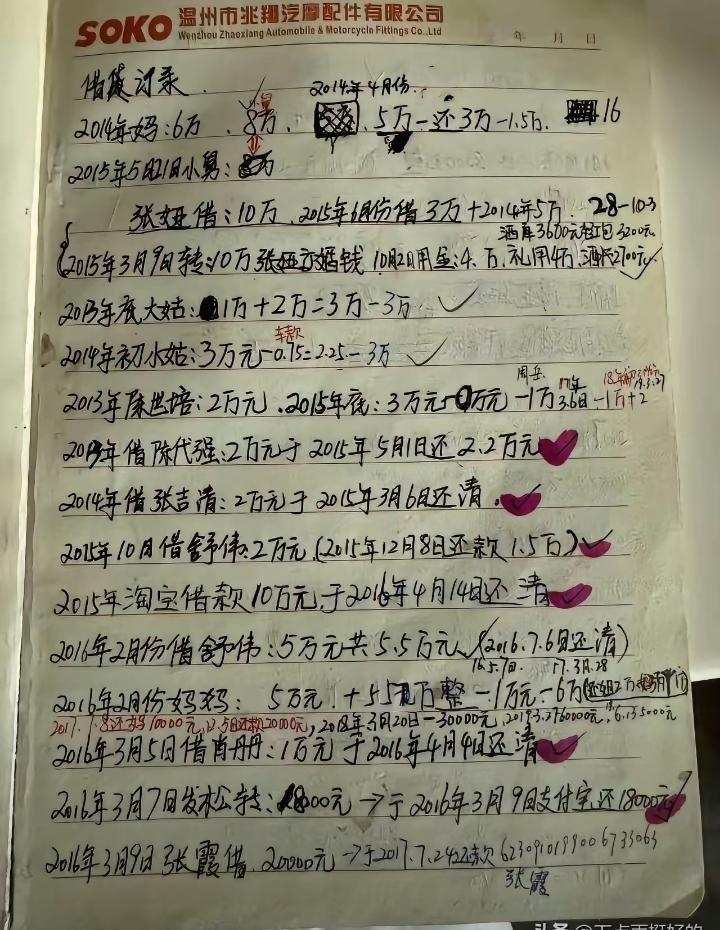 SOKO 温州市兆翔汽摩配件有限公司
Wenzhou Zhaoxiang Automobile & Motorcycle Fittings Co.,Ltd
年 月 日
借贷记录
2014年4月份
2014年妈:6万 8万 5万-还3万-1.5万 16
2015年5月21日小舅: 万
张妞借:10万 2015年6月份借3万+2014年5万 28-10-3
酒席3600元 红包3200元
2015年3月9日转:10万 10月2日用金:4万 礼用4万 酒代2700元
2013年底大姑: 1万+2万=3万-3万 ✓
车款
2014年初小姑:3万元-0.75=2.25-3万 ✓
2013年陈世培:2万元.2015年底:3万元 万元-1万 3.6日-1万+2
借陈代强:2万元于2015年5月1日还2.2万元 ✓
2014年借张吉清:2万元于2015年3月6日还清. ✓
2015年10月借舒伟:2万元(2015年12月8日还款1.5万) ✓
2015年淘宝借款10万元,于2016年4月14日还清 ✓
2016年2月份借舒伟:5万元共5.5万元 (2016.7.6日还清)
16.5.7日 17.3月.28
2016年2月份妈妈:5万元 万整-1万元-6万
2017.1.8还妈10000元 还款20000元,2018年3月20日-30000元
2016年3月5日借肖丹丹:1万元于2016年4月4日还清 ✓
2016年3月7日 转: 000元→于2016年3月9日支付宝还18000元 ✓
2016年3月9日张霞借 20000元→于2017.7.24 款 6230910199006733063
张霞
头条